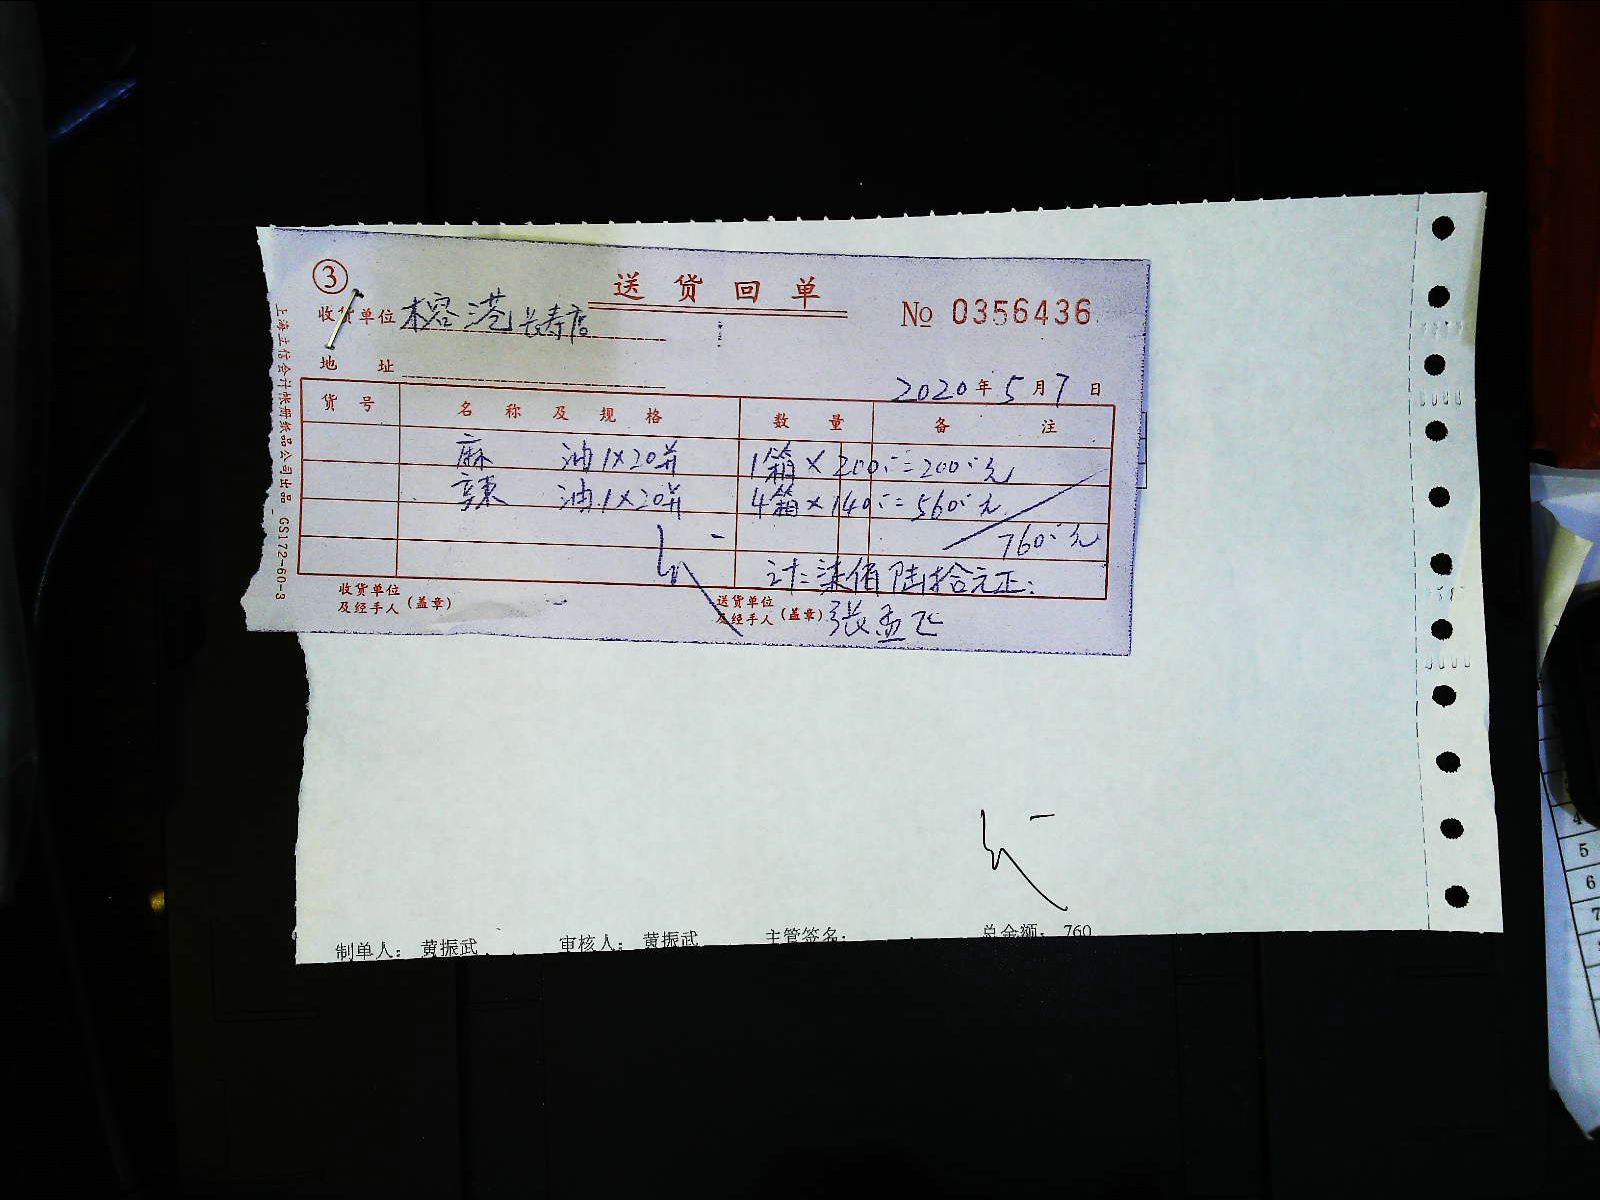 ③
送货回单
№ 0356436
收货单位 榕港长寿店
地址
2020年5月7日
货号 名称及规格 数量 备注
麻油 1×20并 1箱×200:=200:元
辣油 1×20并 4箱×140:=560:元
760:元
计:柒佰陆拾元正:
收货单位及经手人(盖章)
送货单位及经手人(盖章) 张孟飞
上海立信会计帐册纸品公司出品 GS172-60-3
制单人: 黄振武 审核人: 黄振武 主管签名: 总金额: 760
4
5
6
7